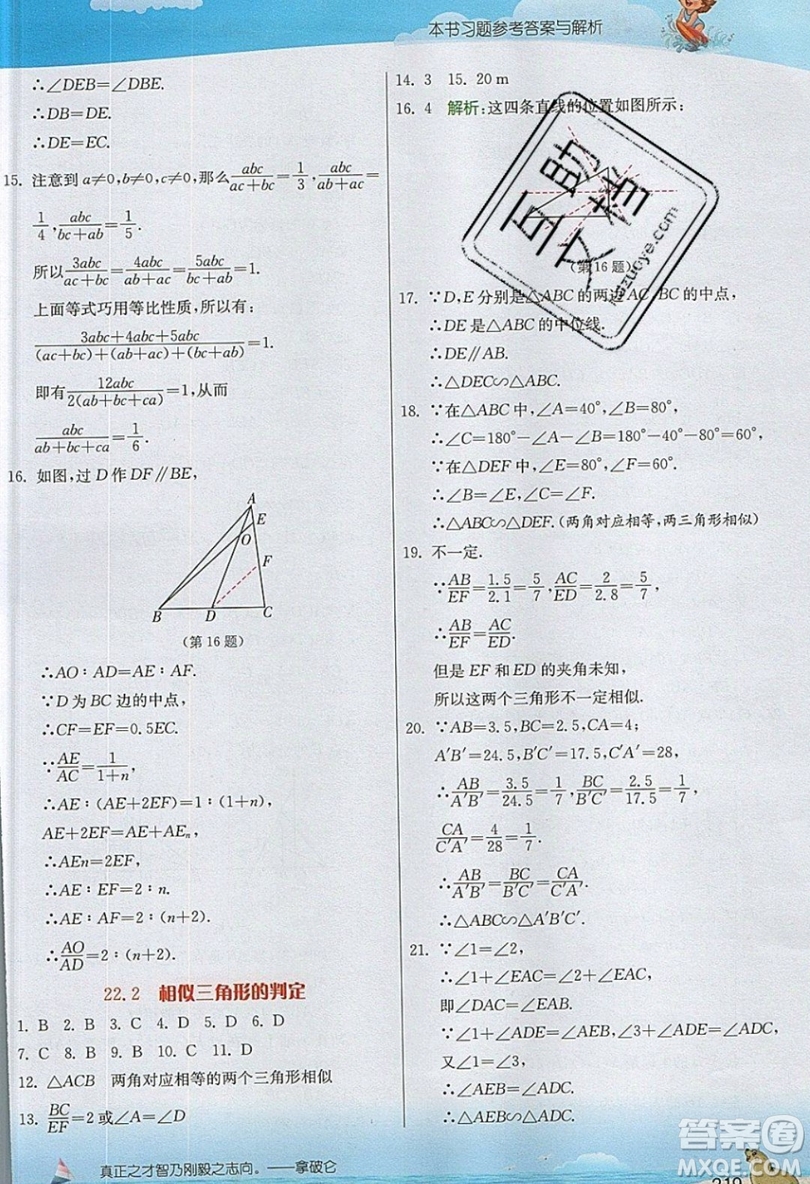 本书习题参考答案与解析
∴∠DEB=∠DBE.
∴DB=DE.
∴DE=EC.
15. 注意到 a≠0,b≠0,c≠0,那么abc/(ac+bc)=1/3,abc/(ab+ac)=
1/4,abc/(bc+ab)=1/5.
所以3abc/(ac+bc)=4abc/(ab+ac)=5abc/(bc+ab)=1.
上面等式巧用等比性质,所以有
(3abc+4abc+5abc)/((ac+bc)+(ab+ac)+(bc+ab))=1.
即有12abc/(2(ab+bc+ca))=1,从而
abc/(ab+bc+ca)=1/6.
16. 如图,过 D 作 DF∥BE,
A
E
O
F
B
D
C
(第 16 题)
∴AO∶AD=AE∶AF.
∵D 为 BC 边的中点,
∴CF=EF=0.5EC.
∵AE/AC=1/(1+n),
∴AE∶(AE+2EF)=1∶(1+n),
AE+2EF=AE+AEn,
∴AEn=2EF,
∴AE∶EF=2∶n.
∴AE∶AF=2∶(n+2).
∴AO/AD=2∶(n+2).
22.2 相似三角形的判定
1. B 2. B 3. C 4. D 5. D 6. D
7. C 8. B 9. B 10. C 11. D
12. △ACB 两角对应相等的两个三角形相似
13. BC/EF=2 或∠A=∠D
14. 3 15. 20 m
16. 4 解析:这四条直线的位置如图所示:
(第 16 题)
17. ∵D,E 分别是△ABC 的两边 AC,BC 的中点,
∴DE 是△ABC 的中位线.
∴DE∥AB.
∴△DEC∽△ABC.
18. ∵在△ABC 中,∠A=40°,∠B=80°,
∴∠C=180°-∠A-∠B=180°-40°-80°=60°.
∵在△DEF 中,∠E=80°,∠F=60°.
∴∠B=∠E,∠C=∠F.
∴△ABC∽△DEF.(两角对应相等,两三角形相似)
19. 不一定.
∵AB/EF=1.5/2.1=5/7,AC/ED=2/2.8=5/7,
∴AB/EF=AC/ED.
但是 EF 和 ED 的夹角未知,
所以这两个三角形不一定相似.
20. ∵AB=3.5,BC=2.5,CA=4;
A′B′=24.5,B′C′=17.5,C′A′=28,
∴AB/A′B′=3.5/24.5=1/7,BC/B′C′=2.5/17.5=1/7,
CA/C′A′=4/28=1/7.
∴AB/A′B′=BC/B′C′=CA/C′A′.
∴△ABC∽△A′B′C′.
21. ∵∠1=∠2,
∴∠1+∠EAC=∠2+∠EAC,
即∠DAC=∠EAB.
∵∠1+∠ADE=∠AEB,∠3+∠ADE=∠ACB,
又∠1=∠3,
∴∠AEB=∠ACB.
∴△AEB∽△ADC.
真正之才智乃刚毅之志向。——拿破仑
219
答案圈
MXQE.COM